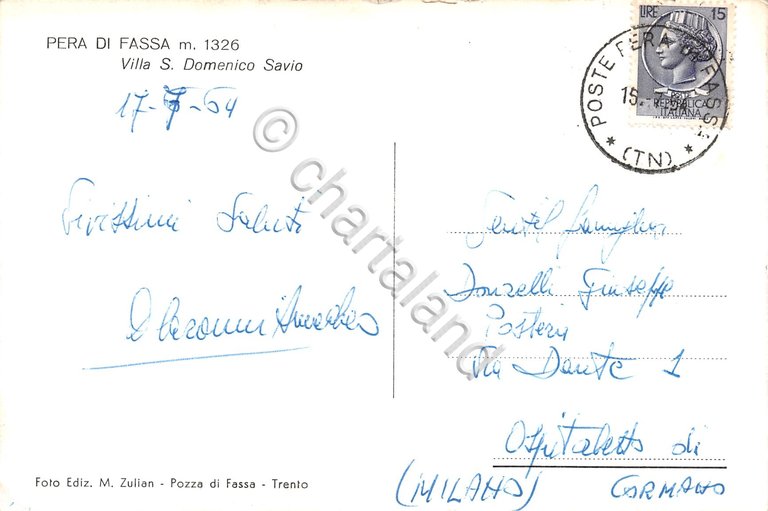 PERA DI FASSA m. 1326
Villa S. Domenico Savio
17-7-64
Vivissimi Saluti
Foto Ediz. M. Zulian - Pozza di Fassa - Trento
© chartaland
LIRE 15
REPUBBLICA
ITALIANA
POSTE PERA FASSA
15.
(TN)
Gentil Famiglia
Donzelli Giuseppe
Via Dante 1
Ospitaletto di
(MILANO) CORMANO